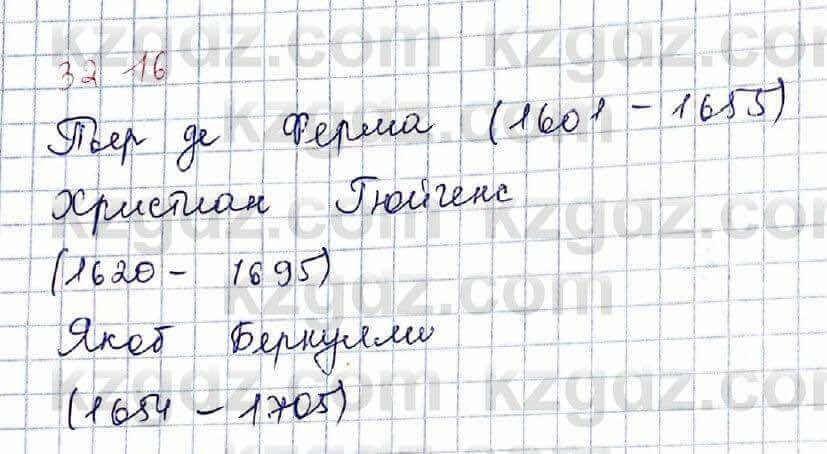 kzgdz.com kzgdz.com
32 16
Пьер де Ферма (1601 - 1655)
kzgdz.com
Христиан Гюйгенс
kzgdz.com kzgdz.com
(1620 - 1695)
kzgdz.com
Якоб Бернулли
kzgdz.com kzgdz.com
(1654 - 1705)